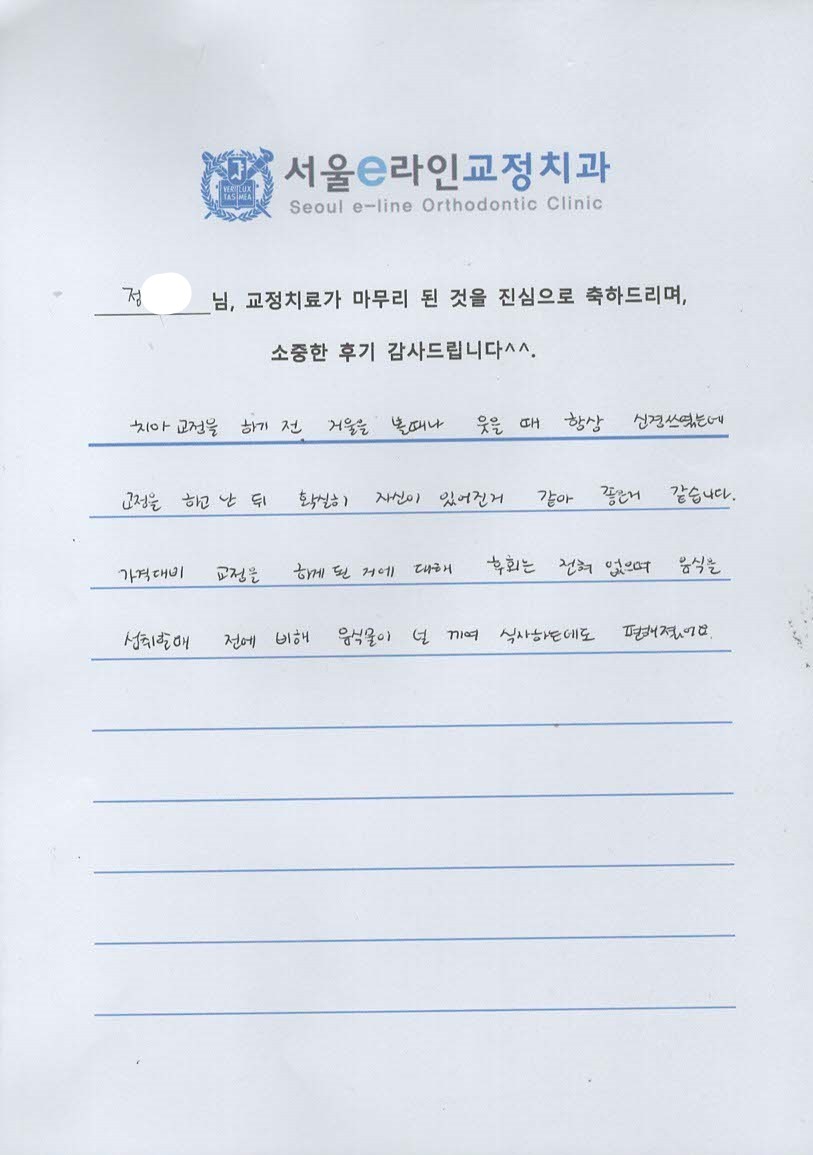 서울e라인교정치과
Seoul e-line Orthodontic Clinic
VERI LUX
TAS MEA
정 님, 교정치료가 마무리 된 것을 진심으로 축하드리며,
소중한 후기 감사드립니다^^.
치아 교정을 하기 전 거울을 볼때나 웃을 때 항상 신경쓰였는데
교정을 하고 난 뒤 확실히 자신이 있어진거 같아 좋은거 같습니다.
가격대비 교정을 하게 된 거에 대해 후회는 전혀 없으며 음식을
섭취할때 전에 비해 음식물이 덜 끼여 식사하는데도 편해졌어요.